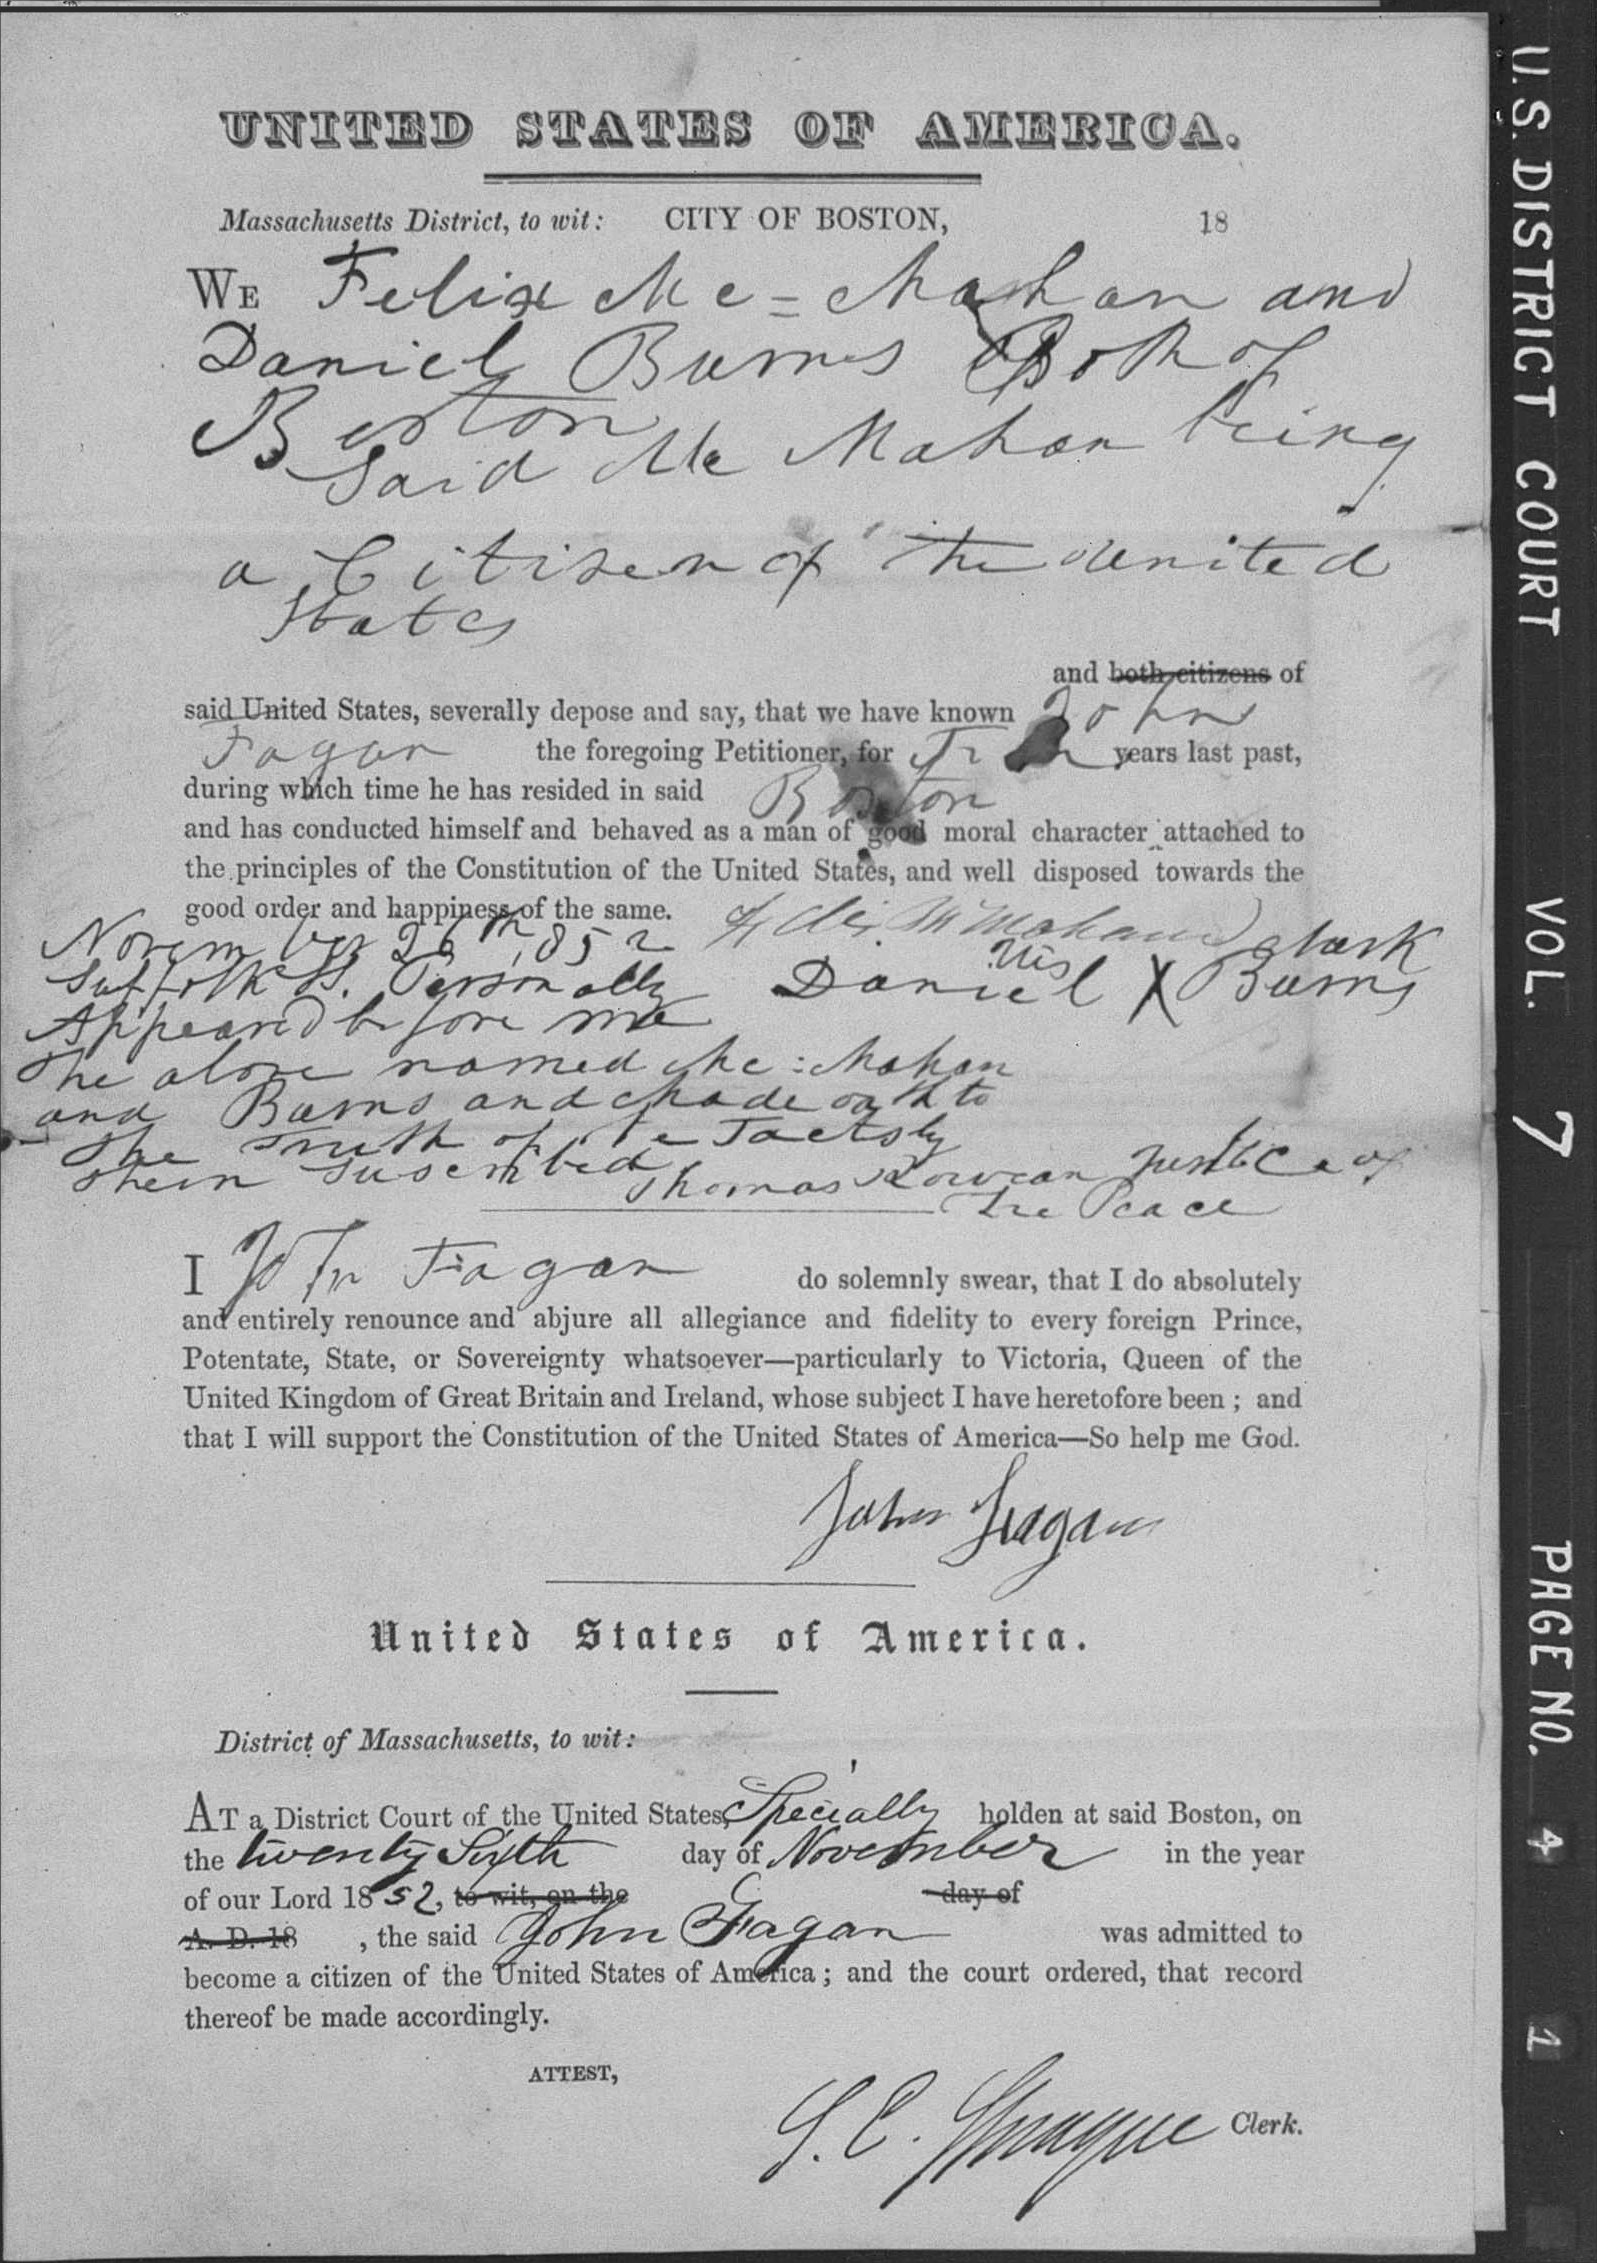 UNITED STATES OF AMERICA.
Massachusetts District, to wit: CITY OF BOSTON, 18
WE Felix Mc=Mahan and
Daniel Burns Both of
Boston
Said Mc Mahan being
a Citizen of the United
States
and both citizens of
said United States, severally depose and say, that we have known John
Fagan the foregoing Petitioner, for years last past,
during which time he has resided in said Boston
and has conducted himself and behaved as a man of good moral character attached to
the principles of the Constitution of the United States, and well disposed towards the
good order and happiness of the same.
Felix McMahan
his mark
Daniel X Burns
November 26th 1852
Suffolk ss. Personally
Appeared before me
The above named Mc:Mahan
and Burns and Made oath to
the Truth of the Facts by
them Suscribed
Thomas Justice of
The Peace
I John Fagan do solemnly swear, that I do absolutely
and entirely renounce and abjure all allegiance and fidelity to every foreign Prince,
Potentate, State, or Sovereignty whatsoever—particularly to Victoria, Queen of the
United Kingdom of Great Britain and Ireland, whose subject I have heretofore been; and
that I will support the Constitution of the United States of America—So help me God.
John Feagan
United States of America.
District of Massachusetts, to wit:
AT a District Court of the United States, Specially holden at said Boston, on
the twenty Sixth day of November in the year
of our Lord 1852, to wit, on the day of
A. D. 18 , the said John Fagan was admitted to
become a citizen of the United States of America; and the court ordered, that record
thereof be made accordingly.
ATTEST,
S. E. Sprague Clerk.
U.S. DISTRICT COURT VOL. 7 PAGE NO. 41